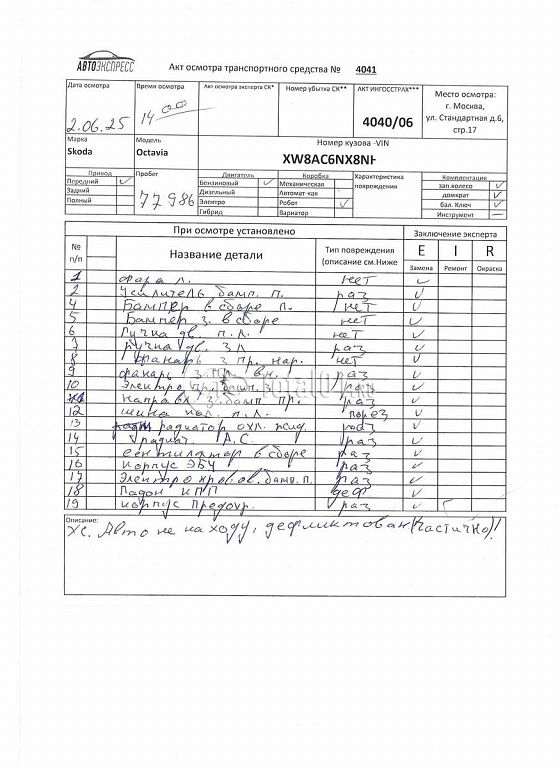 АВТОЭКСПРЕСС
Акт осмотра транспортного средства № 4041
Дата осмотра
2.06.25
Время осмотра
14 00
Акт осмотра эксперта СК*
Номер убытка СК**
АКТ ИНГОССТРАХ***
4040/06
Место осмотра:
г. Москва,
ул. Стандартная д.6,
стр.17
Марка
Skoda
Модель
Octavia
Номер кузова -VIN
XW8AC6NX8NH
Привод
Передний ✓
Задний
Полный
Пробег
77986
Двигатель
Бензиновый ✓
Дизельный
Электро
Гибрид
Коробка
Механическая
Автомат-кая
Робот ✓
Вариатор
Характеристика
повреждения
Комплектация
зап.колесо ✓
домкрат ✓
бал. Ключ ✓
Инструмент —
При осмотре установлено
Заключение эксперта
№
п/п
Название детали
Тип повреждения
(описание см.Ниже
E I R
Замена Ремонт Окраска
1 фара л. нет ✓
2 Усилитель бамп. п. раз ✓
4 Бампер в сборе п. нет ✓
5 Бампер з. в сборе нет ✓
6 Ручка дв. п.л. нет ✓
7 ручка дв. з л раз ✓
8 фанарь з пр. нар. нет ✓
9 фанарь з.пр. вн. раз ✓
10 Электро пр. бамп. з раз ✓
11 Направл з.бамп пр. раз ✓
12 шина кол. п.л. порез ✓
13 радиатор охл. жид. раз ✓
14 радиат. А.С. раз ✓
15 вентилятор в сборе раз ✓
16 Корпус ЭБУ раз ✓
17 Электро провов. бамп. п. раз ✓
18 Падон КПП деф ✓
19 корпус Предохр. раз ✓
Описание:
УС. Авто не на ходу, дефликтован (частично)!